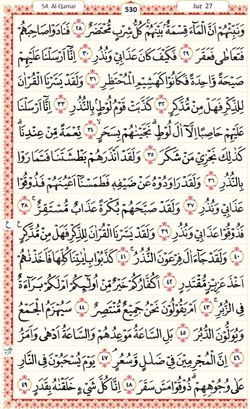 54. Al-Qamar 530 Juz 27
وَنَبِّئْهُمْ أَنَّ ٱلْمَآءَ قِسْمَةٌۢ بَيْنَهُمْ ۖ كُلُّ شِرْبٍ مُّحْتَضَرٌ ٢٨ فَنَادَوْا۟ صَاحِبَهُمْ
فَتَعَاطَىٰ فَعَقَرَ ٢٩ فَكَيْفَ كَانَ عَذَابِى وَنُذُرِ ٣٠ إِنَّآ أَرْسَلْنَا عَلَيْهِمْ
صَيْحَةً وَٰحِدَةً فَكَانُوا۟ كَهَشِيمِ ٱلْمُحْتَظِرِ ٣١ وَلَقَدْ يَسَّرْنَا ٱلْقُرْءَانَ
لِلذِّكْرِ فَهَلْ مِن مُّدَّكِرٍ ٣٢ كَذَّبَتْ قَوْمُ لُوطٍۭ بِٱلنُّذُرِ ٣٣ إِنَّآ أَرْسَلْنَا
عَلَيْهِمْ حَاصِبًا إِلَّآ ءَالَ لُوطٍ ۖ نَّجَّيْنَٰهُم بِسَحَرٍ ٣٤ نِّعْمَةً مِّنْ عِندِنَا ۚ
كَذَٰلِكَ نَجْزِى مَن شَكَرَ ٣٥ وَلَقَدْ أَنذَرَهُم بَطْشَتَنَا فَتَمَارَوْا۟
بِٱلنُّذُرِ ٣٦ وَلَقَدْ رَٰوَدُوهُ عَن ضَيْفِهِۦ فَطَمَسْنَآ أَعْيُنَهُمْ فَذُوقُوا۟
عَذَابِى وَنُذُرِ ٣٧ وَلَقَدْ صَبَّحَهُم بُكْرَةً عَذَابٌ مُّسْتَقِرٌّ ٣٨
فَذُوقُوا۟ عَذَابِى وَنُذُرِ ٣٩ وَلَقَدْ يَسَّرْنَا ٱلْقُرْءَانَ لِلذِّكْرِ فَهَلْ مِن مُّدَّكِرٍ
٤٠ وَلَقَدْ جَآءَ ءَالَ فِرْعَوْنَ ٱلنُّذُرُ ٤١ كَذَّبُوا۟ بِـَٔايَٰتِنَا كُلِّهَا فَأَخَذْنَٰهُمْ
أَخْذَ عَزِيزٍ مُّقْتَدِرٍ ٤٢ أَكُفَّارُكُمْ خَيْرٌ مِّنْ أُو۟لَٰٓئِكُمْ أَمْ لَكُم بَرَآءَةٌ
فِى ٱلزُّبُرِ ٤٣ أَمْ يَقُولُونَ نَحْنُ جَمِيعٌ مُّنتَصِرٌ ٤٤ سَيُهْزَمُ ٱلْجَمْعُ
وَيُوَلُّونَ ٱلدُّبُرَ ٤٥ بَلِ ٱلسَّاعَةُ مَوْعِدُهُمْ وَٱلسَّاعَةُ أَدْهَىٰ وَأَمَرُّ
٤٦ إِنَّ ٱلْمُجْرِمِينَ فِى ضَلَٰلٍ وَسُعُرٍ ٤٧ يَوْمَ يُسْحَبُونَ فِى ٱلنَّارِ
عَلَىٰ وُجُوهِهِمْ ذُوقُوا۟ مَسَّ سَقَرَ ٤٨ إِنَّا كُلَّ شَىْءٍ خَلَقْنَٰهُ بِقَدَرٍ ٤٩